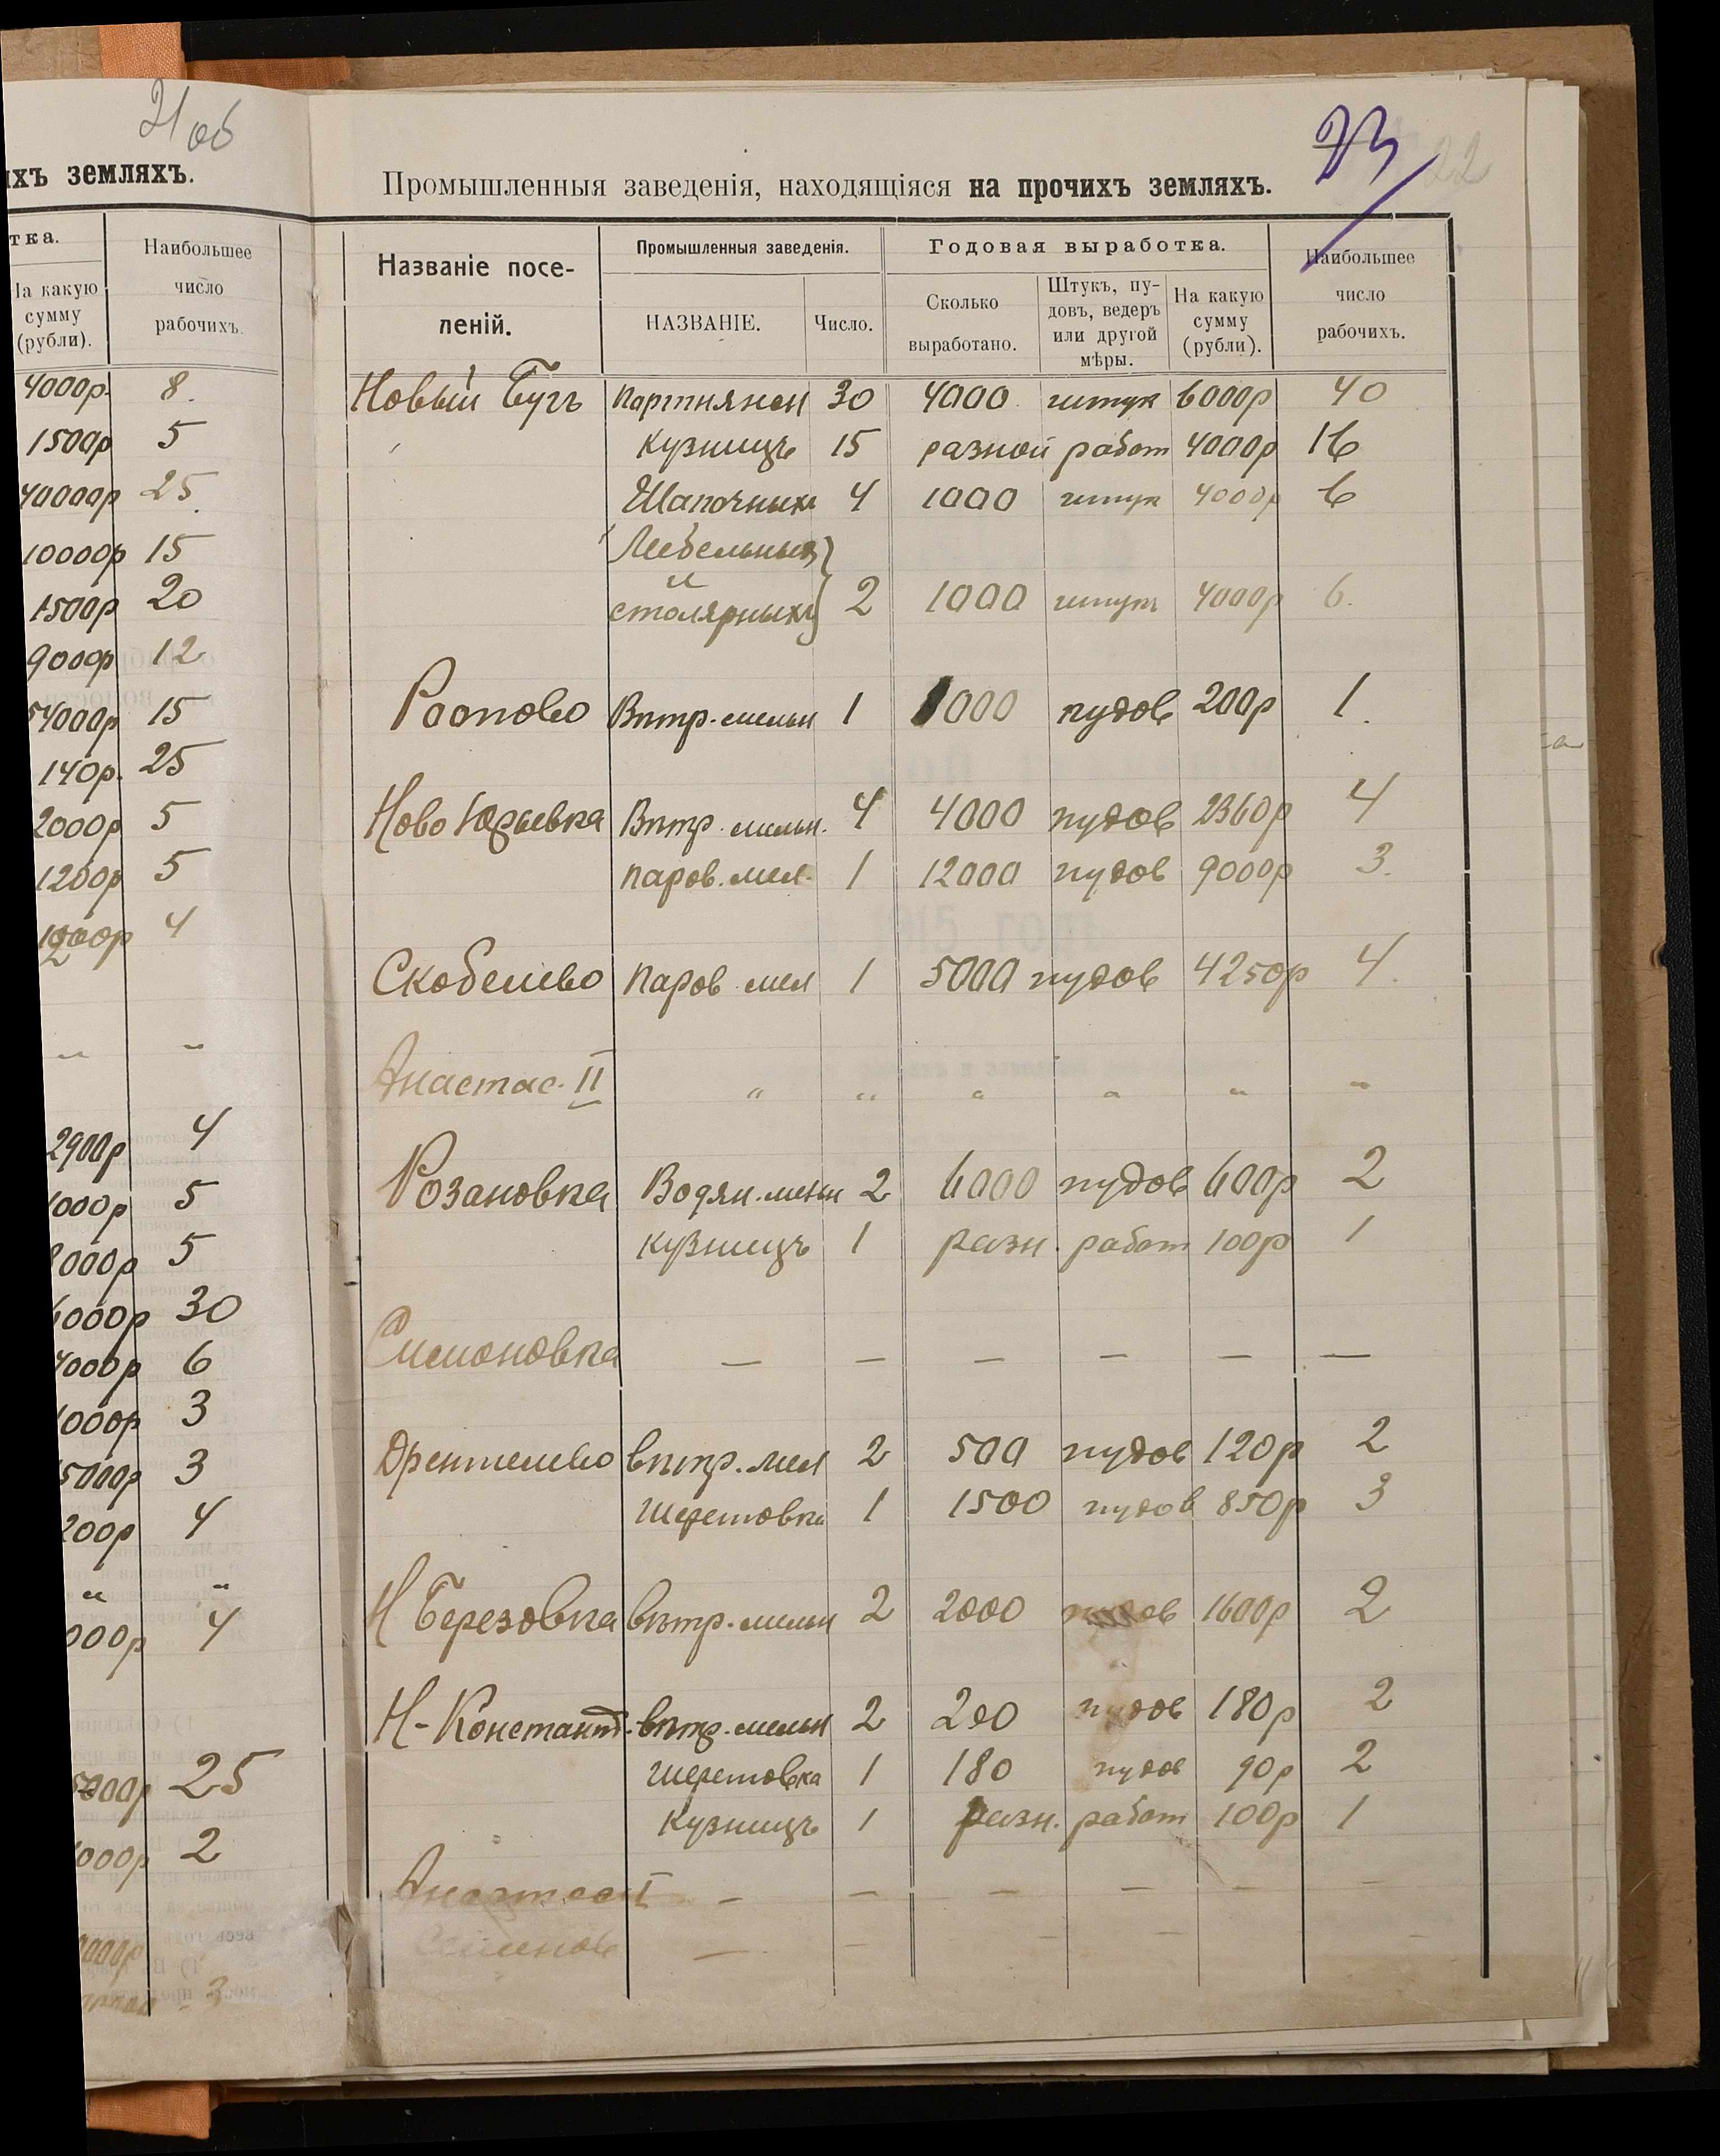 21 об
ихъ земляхъ.
тка.
Наибольшее
число
рабочихъ.
На какую
сумму
(рубли).
4000р. 8.
1500р 5
40000р 25
10000р 15
1500р 20
9000р 12
54000р 15
140р. 25
2000р 5
1200р 5
4
„ „
2900р 4
000р 5
000р 5
000р 30
4000р 6
000р 3
5000р 3
200р 4
„ „
000р 4
25
000р 2
3
23
22
Промышленныя заведенія, находящіяся на прочихъ земляхъ.
Названіе посе-
леній.
Промышленныя заведенія.
НАЗВАНІЕ. Число.
Годовая выработка.
Сколько
выработано.
Штукъ, пу-
довъ, ведеръ
или другой
мѣры.
На какую
сумму
(рубли).
Наибольшее
число
рабочихъ.
Новый Бугъ 30 4000 штук 6000р 40
Кузницъ 15 разной работ 4000р 16
Шапочныхъ 4 1000 штук 4000р 6
Мебельныхъ
и
столярныхъ 2 1000 штукъ 4000р 6.
Вѣтр. мельн 1 1000 пудов 200р 1.
Ново Юрьевка Вѣтр. мельн. 4 4000 пудов 2360р 4
паров. мел. 1 12000 пудов 9000р 3.
Скобелево паров мел 1 5000 пудов 4250р 4.
Анастас. II „ „ „ „ „ „
Розановка Водян. мельн 2 6000 пудов 600р 2
Кузницъ 1 разн. работ 100р 1
Симоновка — — — — — —
Дрентелево вѣтр. мел 2 500 пудов 120р 2
Шеретовка 1 1500 пудов 850р 3
Н Березовка вѣтр. мельн 2 2000 пудов 1600р 2
Н-Констант. вѣтр. мельн 2 200 пудов 180р 2
Шеретовка 1 180 пудов 90р 2
Кузницъ 1 разн. работ 100р 1
Анастас I — — — — — —
— — — — —